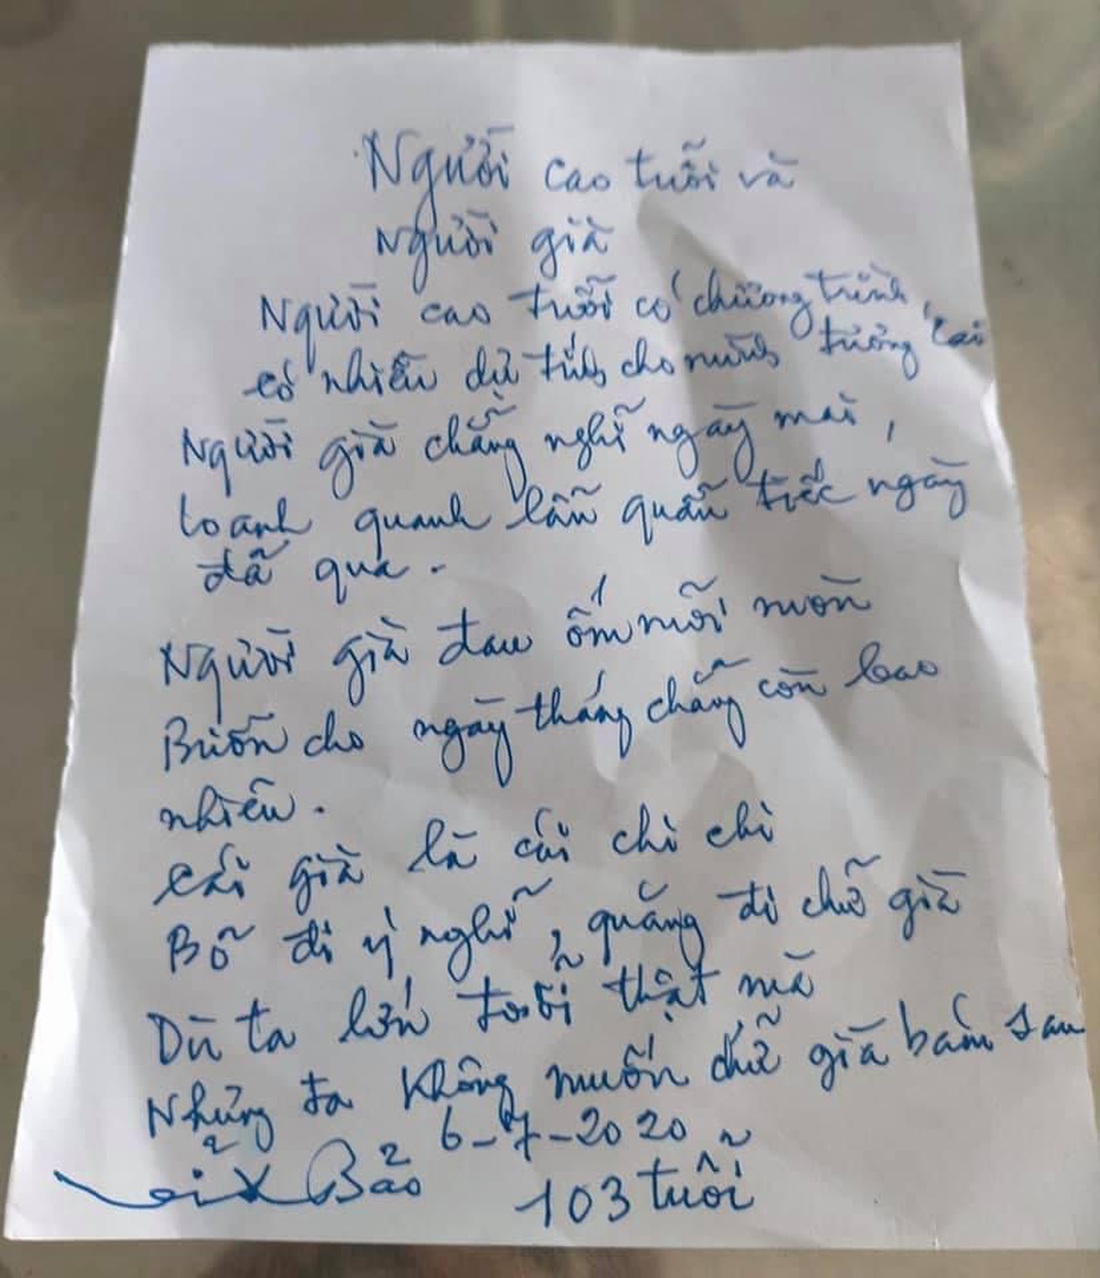 Người cao tuỗi và
Người già
Người cao tuỗi có chương trình,
có nhiều dự tính cho mình tương lai
Người già chẳng nghĩ ngày mai,
loanh quanh lẫn quẫn tiếc ngày
đã qua.
Người già đau ốm mỗi mòn
Buồn cho ngày tháng chẵng còn bao
nhiêu.
cái già là cái chi chi
Bỗ đi ý nghĩ, quăng đi chữ già
Dù ta lớn tuỗi thật mà
Nhưng ta không muốn chữ già bám sau
6-7-2020
Bảo 103 tuỗi